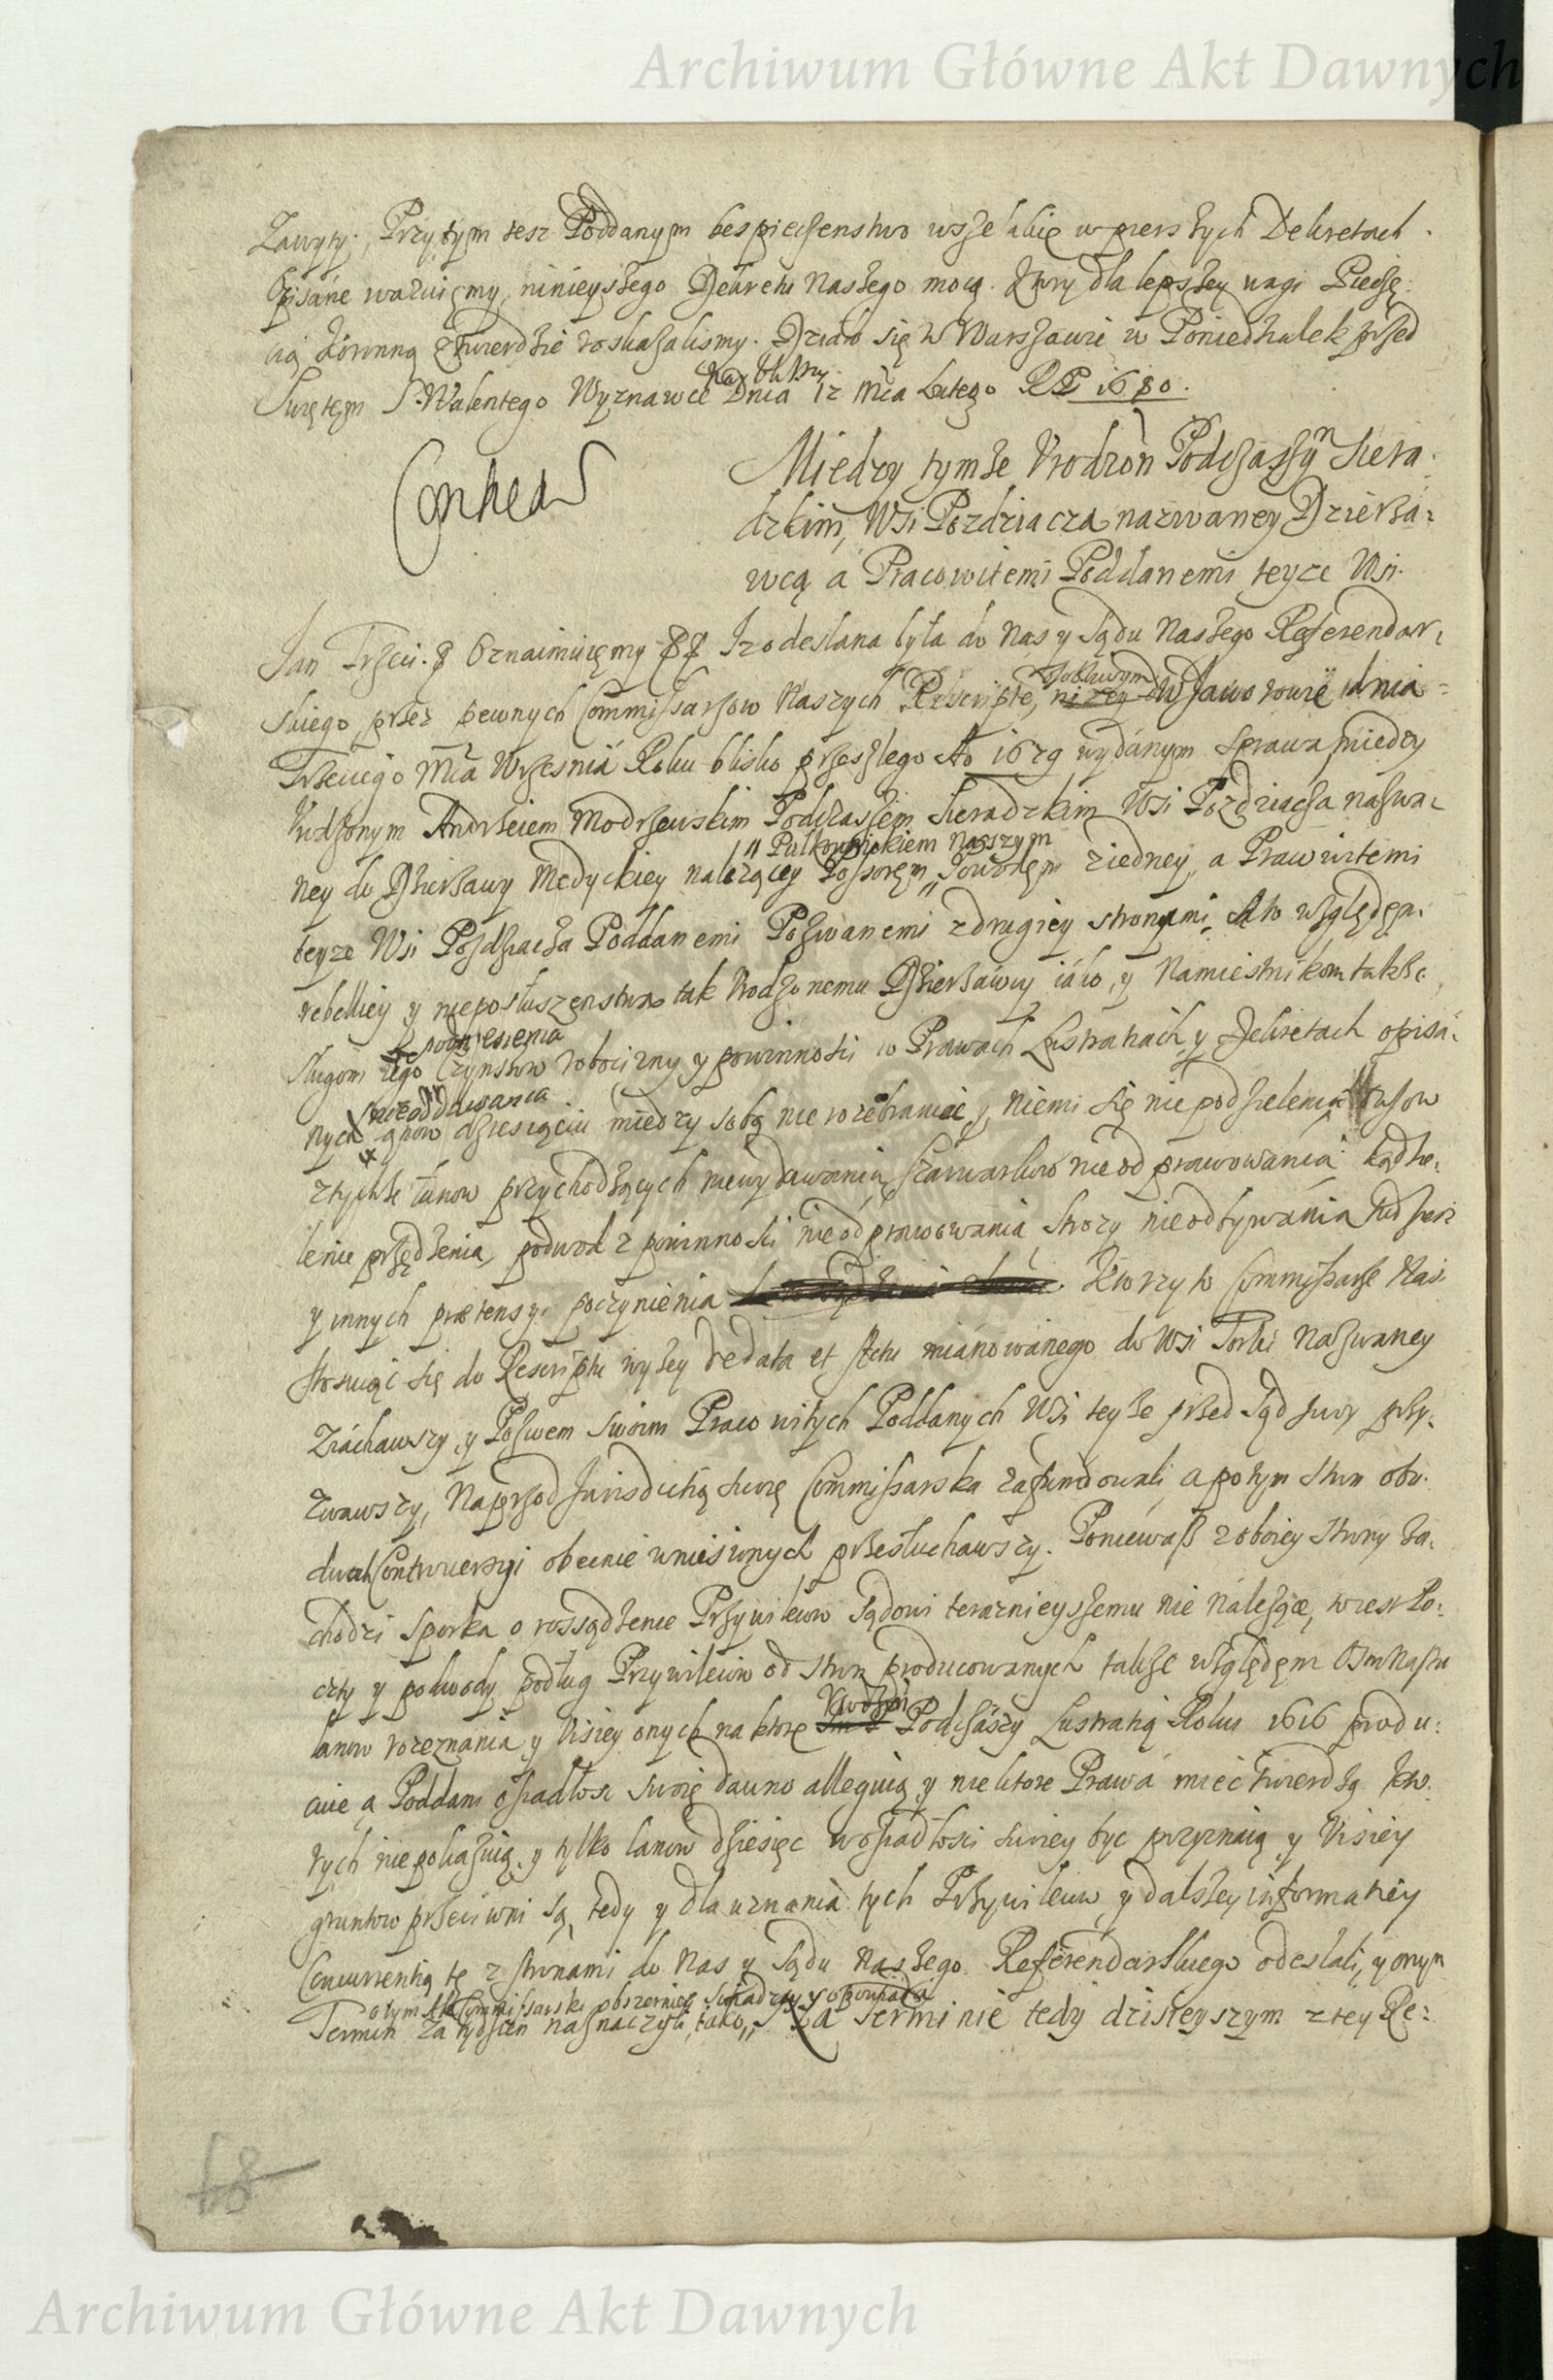 Archiwum Główne Akt Dawnych
Zawzyty. Przytym tesz Poddanym bespieczenstwo wszelakie w pierszych Dekretach
opisane waruięmy, ninieyszego Dekretu Naszego mocą. Ktory dla lepszey wagi Pieczę:
cią Koronną ztwierdzic roskazalismy. Działo się w Warszawie w Poniedzialek przed
Swiętęm S. Walentego Wyznawce Dnia 12 Mca Lutego RP 1680.
Miedzy tymże Urodzon Podczaszym Siera:
dzkim, Wsi Pozdziacza nazwaney Dzierża:
wcą á Pracowitemi Poddanemi teyze Wsi.
Jan Trzeci. Oznaimuięmy Iz odeslana była do Nas y Sądu Naszego Referendar:
skiego, przez pewnych Commissarzow Naszych Rescripte, w Jaworowie dnia
Trzeciego Mca Wrzesniá Roku blisko przeszlego Ao 1679 wydánym Sprawa miedzy
Urodzonym Andrzeiem Modrzewskim Podczaszem Sieradzkim Wsi Pozdziacza nazwa:
„ Pułkownikiem Naszym
ney do Dzierżawy Medyckiey nalezącey Possorem „ Powodęm z iedney, a Pracowitemi
teyze Wsi Pozdziacza Poddanemi Pozwanemi z drugiey stronami, A to względęm
rebelliey y nieposłuszęnstwa tak Urodzonemu Dzierżáwcy iáko, y Namiestnikom także
podniesienia
Sługom iego Czynszow robocizny y powinnosci w Prawach Lustratiach y Dekretach opisá:
nieoddawania
nych łanow dziesięciu miedzy sobą nie rozebrania, y niemi się nie podzielenia
z tychże łanow przychodzących niewydawania, szarwarkow nie odprawowánia kądzie:
lenie przędzenia, podwod z powinnosci nie odprawowania, strozy nie odbywánia
y innych prætensyi poczynienia Ktorzy to Commissarze Nasi
stosuiąc się do Rescriptu wyżey de data et Actu miánowánego do Wsi Torki Nazwaney
Ziáchawszy, y Pozwem swoim Pracowitych Poddanych Wsi teyże przed Sąd swoy przy:
zwawszy, Naprzod Jurisdictią swoię Commissarska zafundowali, a potym stron obu:
dwuch Controuersyi obecnie wniesionych przesłuchawszy. Poniewasz z oboiey strony za:
chodzi sporka o rossądzenie Przywileiow Sądowi teraznieyszemu nie náleżące,
y podwody podlug Przywileiow od stron producowanych także względęm Osmnastu
Urodzon
łanow rozeznánia y Visiey onych na ktore Podczászy Lustratią Roku 1616 produ:
cuie a Poddani osiadłosc swoię dawno alleguią y niektore Prawá miec twierdzą kto:
rych nie pokazuią, y tylko łanow dziesięc w osiadłosci swoiey byc przyznaią y Visiey
gruntow przeciwni są, tedy y dla uznania tych Przywileiow y dalszey informatiey
Concurrentią tę z stronami do Nas y Sądu Naszego Referendarskiego odeslali, y onym
o tym Akt Commissarski obszerniey swiadczy y opowiada
Termin za tydzien naznaczyli, iako „ Na Terminie tedy dzisieyszym z tey Re:
68
Archiwum Główne Akt Dawnych